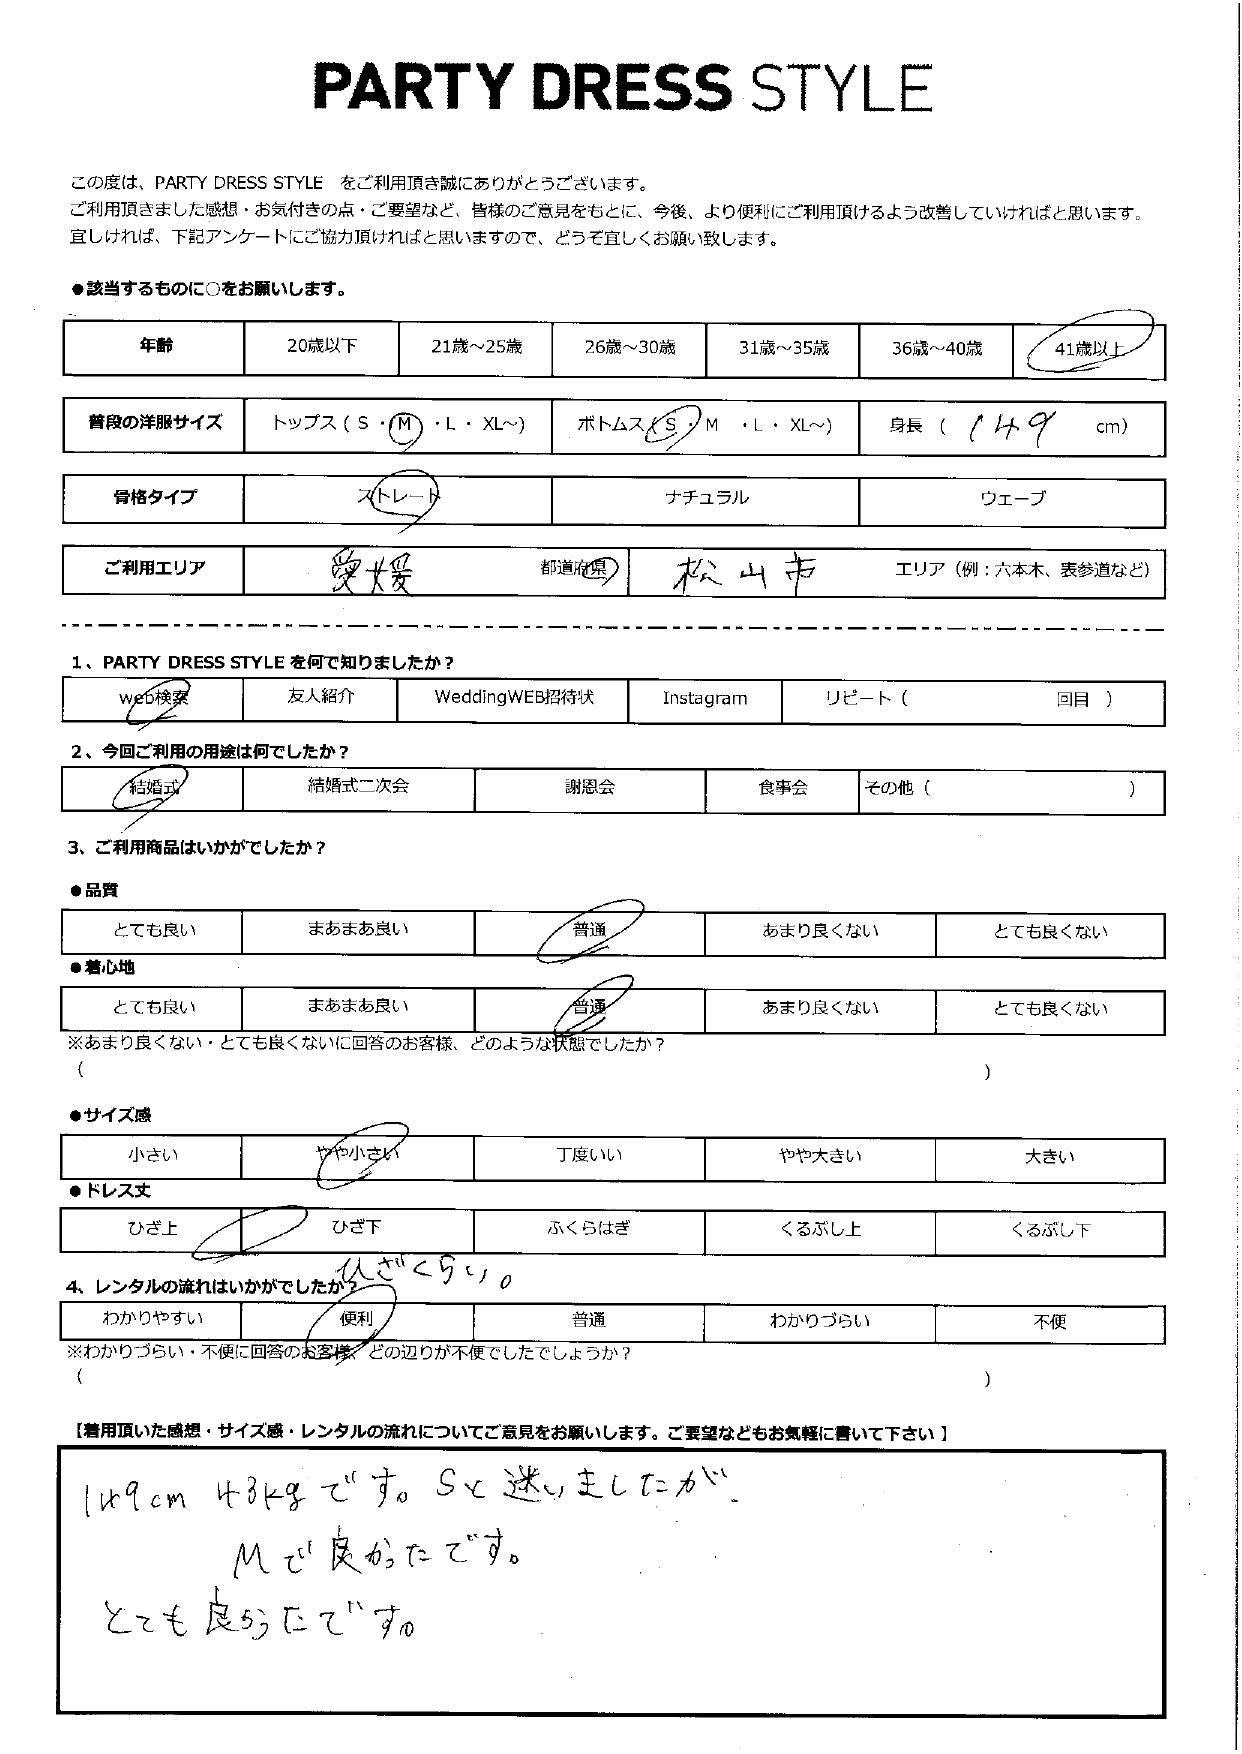 PARTY DRESS STYLE
この度は、PARTY DRESS STYLE　をご利用頂き誠にありがとうございます。
ご利用頂きました感想・お気付きの点・ご要望など、皆様のご意見をもとに、今後、より便利にご利用頂けるよう改善していければと思います。
宜しければ、下記アンケートにご協力頂ければと思いますので、どうぞ宜しくお願い致します。
●該当するものに○をお願いします。
年齢 20歳以下 21歳～25歳 26歳～30歳 31歳～35歳 36歳～40歳 41歳以上
普段の洋服サイズ トップス ( S ・ M ・L ・ XL～) ボトムス ( S ・ M ・L ・ XL～) 身長 ( 149 cm)
骨格タイプ ストレート ナチュラル ウェーブ
ご利用エリア 愛媛 都道府県 松山市 エリア（例：六本木、表参道など）
1、PARTY DRESS STYLE を何で知りましたか？
web検索 友人紹介 WeddingWEB招待状 Instagram リピート（ 回目 ）
2、今回ご利用の用途は何でしたか？
結婚式 結婚式二次会 謝恩会 食事会 その他（ ）
3、ご利用商品はいかがでしたか？
●品質
とても良い まあまあ良い 普通 あまり良くない とても良くない
●着心地
とても良い まあまあ良い 普通 あまり良くない とても良くない
※あまり良くない・とても良くないに回答のお客様、どのような状態でしたか？
（ ）
●サイズ感
小さい やや小さい 丁度いい やや大きい 大きい
●ドレス丈
ひざ上 ひざ下 ふくらはぎ くるぶし上 くるぶし下
ひざくらい。
4、レンタルの流れはいかがでしたか？
わかりやすい 便利 普通 わかりづらい 不便
※わかりづらい・不便に回答のお客様、どの辺りが不便でしたでしょうか？
（ ）
【着用頂いた感想・サイズ感・レンタルの流れについてご意見をお願いします。ご要望などもお気軽に書いて下さい 】
149cm 43kgです。Sと迷いましたが、
Mで良かったです。
とても良かったです。